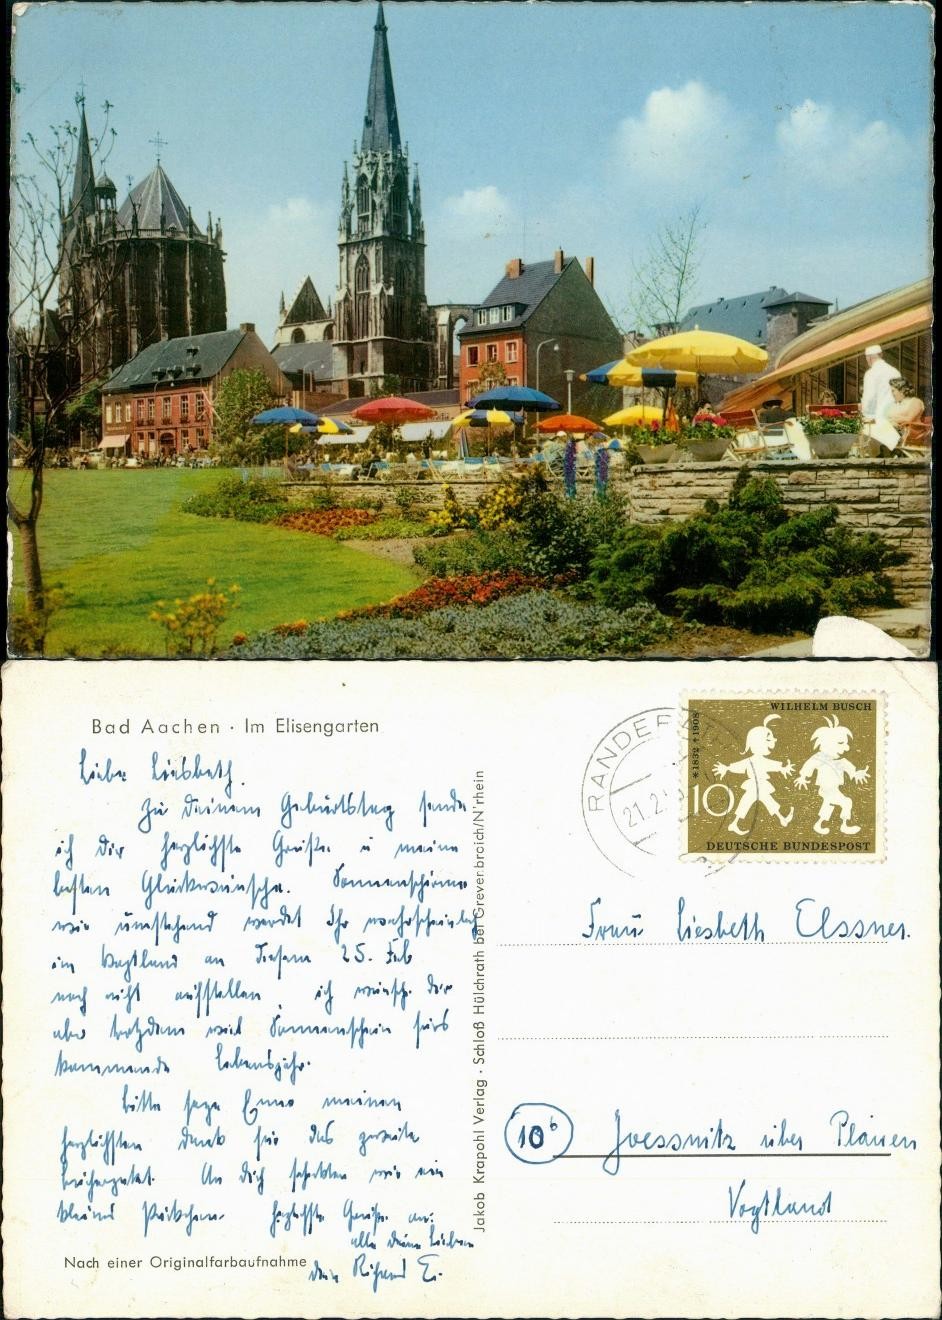 Bad Aachen · Im Elisengarten
Liebe Liesbeth,
Zu Deinem Geburtstag sende
ich Dir herzlichste Grüße u meine
besten Glückwünsche. Sonnenschirme
wie umstehend werdet Ihr wahrscheinlich
im Vogtland an diesem 25. Feb
noch nicht aufstellen, ich wünsche Dir
aber trotzdem viel Sonnenschein fürs
kommende Lebensjahr.
Bitte sage Enno meinen
herzlichsten Dank für das zweite
An Dich schickten wir ein
kleines Päckchen. Herzlichste Grüße an
alle Deine Lieben
Dein Richard E.
Nach einer Originalfarbaufnahme
Jakob Krapohl Verlag · Schloß Hülchrath bei Grevenbroich/N'rhein
RANDER
21.2.
WILHELM BUSCH
*1832 †1908
10
DEUTSCHE BUNDESPOST
Frau Liesbeth Elssner.
10b Joessnitz über Plauen
Vogtland